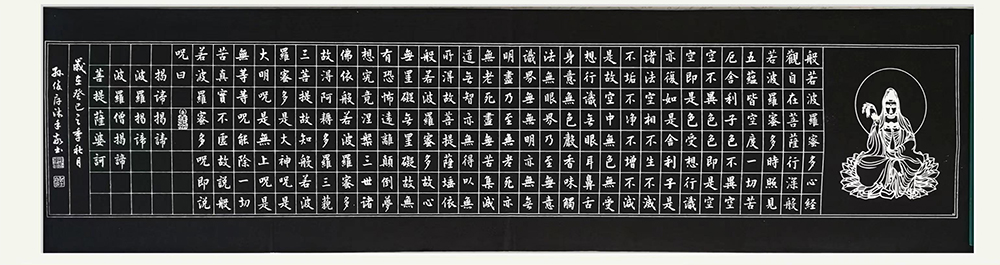 般若波羅蜜多心經
觀自在菩薩行深般
若波羅蜜多時照見
五蘊皆空度一切苦
厄舍利子色不異空
空不異色色即是空
空即是色受想行識
亦復如是舍利子是
諸法空相不生不滅
不垢不淨不增不減
是故空中無色無受
想行識無眼耳鼻舌
身意無色聲香味觸
法無眼界乃至無意
識界無無明亦無無
明盡乃至無老死亦
無老死盡無苦集滅
道無智亦無得以無
所得故菩提薩埵依
般若波羅蜜多故心
無罣礙無罣礙故無
有恐怖遠離顛倒夢
想究竟涅槃三世諸
佛依般若波羅蜜多
故得阿耨多羅三藐
三菩提故知般若波
羅蜜多是大神呪是
大明呪是無上呪是
無等等呪能除一切
苦真實不虛故說般
若波羅蜜多呪即說
呪曰
揭諦揭諦
波羅揭諦
波羅僧揭諦
菩提薩婆訶
歲在癸巳之季秋月
孫俊